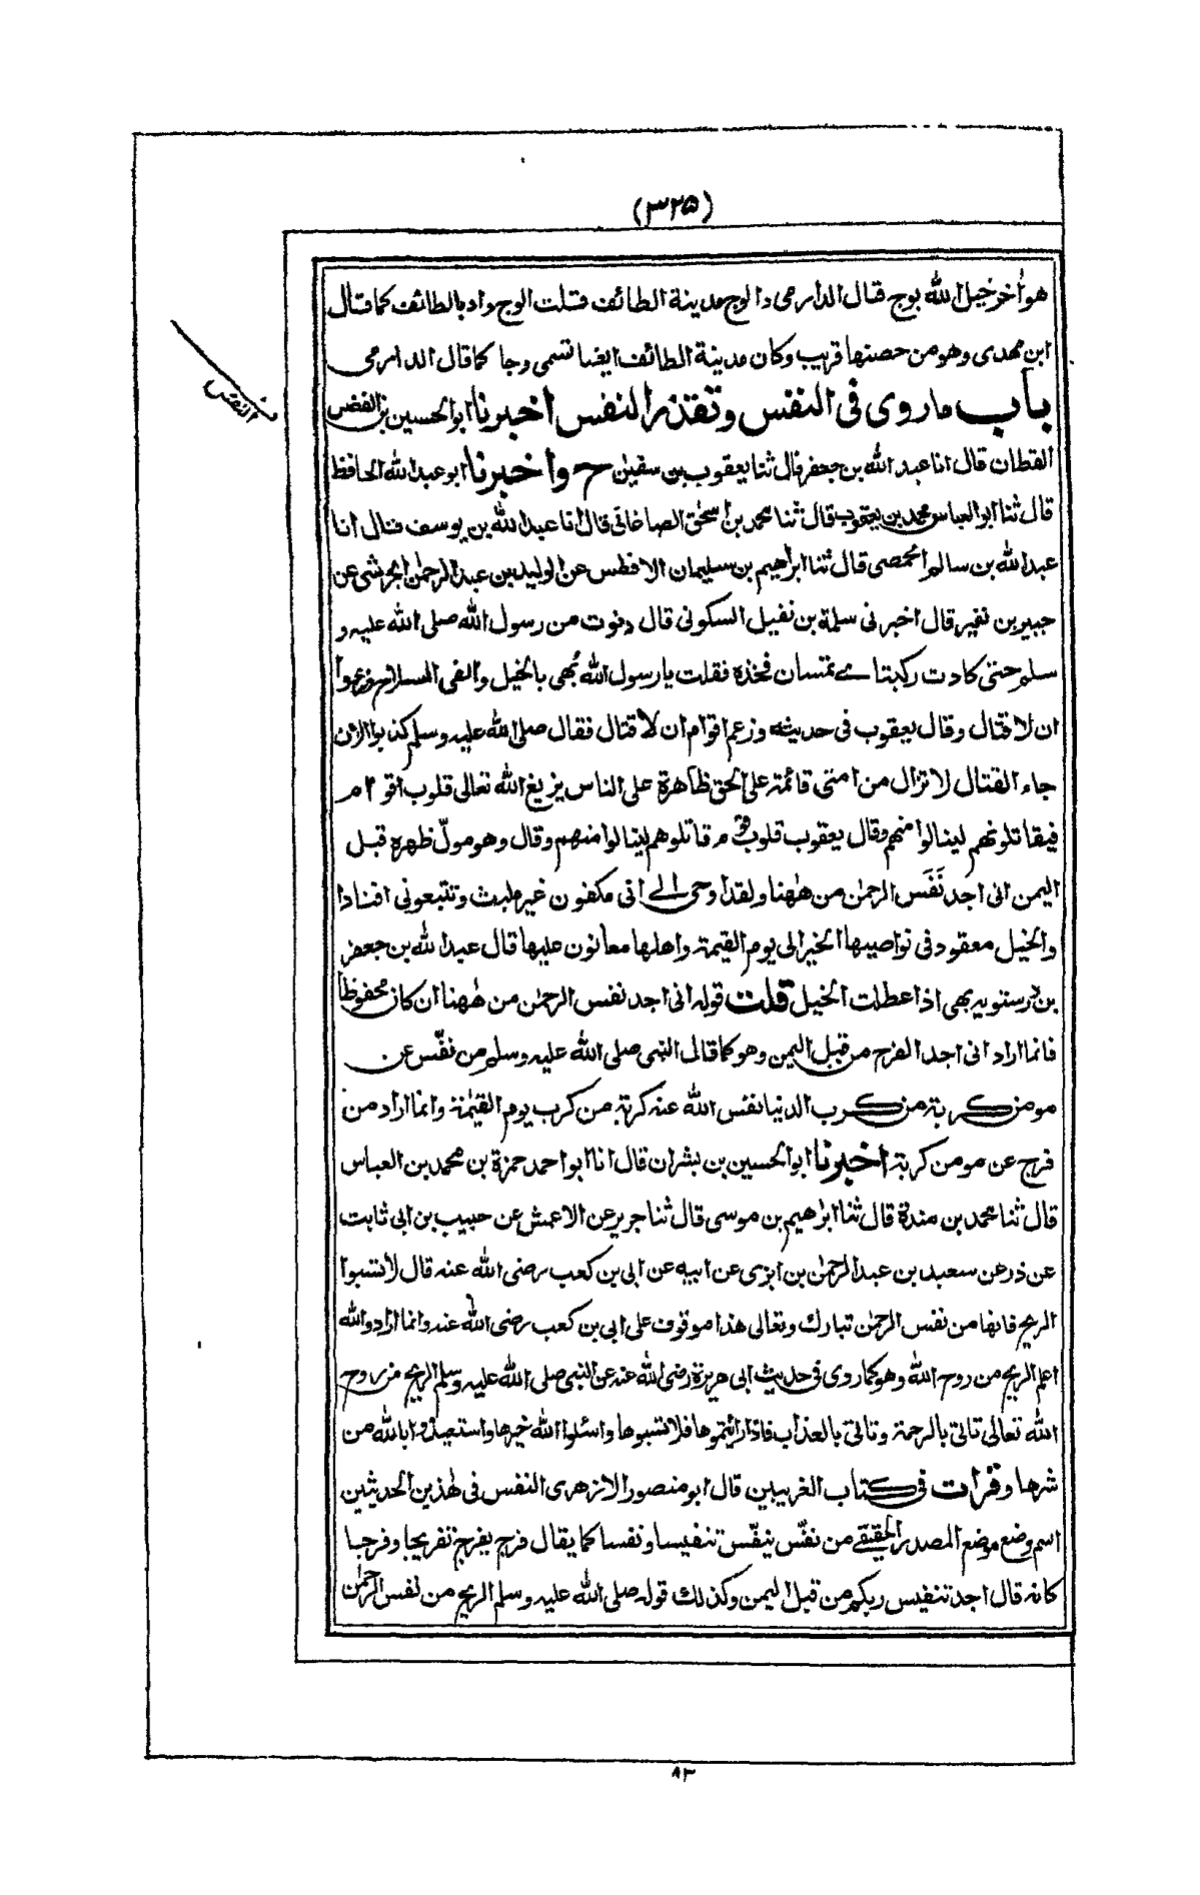 (٣٢٥)
هو اٰخر خيل الله بوج قال الدارمى والوج مدينة الطائف قلت الوج واد بالطائف كما قال
ابن مهدى وهو من حصنها قريب وكان مدينة الطائف ايضا تسمى وجا كما قال الدارمى
باب ما روى فى النفس وتقذر النفس اخبرنا ابو الحسين بن الفضل
القطان قال انا عبد الله بن جعفر قال ثنا يعقوب بن سفيٰن ح واخبرنا ابو عبد الله الحافظ
قال ثنا ابو العباس محمد بن يعقوب قال ثنا محمد بن اسحٰق الصاغانى قال انا عبد الله بن يوسف قال انا
عبد الله بن سالم الحمصى قال ثنا ابراهيم بن سليمان الافطس عن الوليد بن عبد الرحمٰن الجرشى عن
جبير بن نفير قال اخبرنى سلمة بن نفيل السكونى قال دنوت من رسول الله صلى الله عليه و
سلم حتى كادت ركبتاے تمسان فخذه فقلت يا رسول الله بُهى بالخيل والقى السلاح وزعموا
ان لا قتال وقال يعقوب فى حديثه وزعم اقوام ان لا قتال فقال صلى الله عليه وسلم كذبوا الان
جاء القتال لا تزال من امتى قائمة على الحق ظاهرة على الناس يزيغ الله تعالى قلوب اقوام
فيقاتلونهم لينالوا منهم وقال يعقوب قلوب قوم قاتلوهم لينالوا منهم وقال وهو مولّ ظهره قبل
اليمن انى اجد نَفَس الرحمٰن من هٰهنا ولقد اوحى الے انى مكفون غير ملبث وتتبعونى افنادا
والخيل معقود فى نواصيها الخير الى يوم القيمة واهلها معانون عليها قال عبد الله بن جعفر
بن درستويه بهى اذا عطلت الخيل قلت قوله انى اجد نفس الرحمٰن من هٰهنا ان كان محفوظا
فانما اراد انى اجد الفرح من قبل اليمن وهو كما قال النبى صلى الله عليه وسلم من نفّس عن
مومن كربة من كرب الدنيا نفس الله عنه كربة من كرب يوم القيٰمة وانما اراد من
فرج عن مومن كربة اخبرنا ابو الحسين بن بشران قال انا ابو احمد حمزة بن محمد بن العباس
قال ثنا محمد بن مندة قال ثنا ابراهيم بن موسى قال ثنا جرير عن الاعمش عن حبيب بن ابى ثابت
عن ذر عن سعيد بن عبد الرحمٰن بن ابزى عن ابيه عن ابى بن كعب رضى الله عنه قال لا تسبوا
الريح فانها من نفس الرحمٰن تبارك وتعالى هذا موقوف على ابى بن كعب رضى الله عنه وانما اراد والله
اعلم الريح من روح الله وهو كما روى فى حديث ابى هريرة رضى الله عنه عن النبى صلى الله عليه وسلم الريح من روح
الله تعالى تاتى بالرحمة وتاتى بالعذاب فاذا رائتموها فلا تسبوها واسئلوا الله خيرها واستعيذوا بالله من
شرها وقرات فى كتاب الغريبين قال ابو منصور الازهرى النفس فى هٰذين الحديثين
اسم وضع موضع المصدر الحقيقے من نفّس ينفّس تنفيسا ونفسا كما يقال فرج يفرج تفريجا وفرجا
كانه قال اجد تنفيس ربكم من قبل اليمن وكذلك قوله صلى الله عليه وسلم الريح من نفس الرحمٰن
٨٢